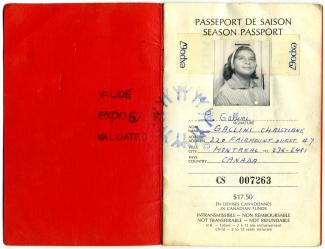 VALIDÉ
expo67
VALIDATED
PASSEPORT DE SAISON
SEASON PASSPORT
expo67
expo67
C. Gallini
SIGNATURE
GALLINI CHRISTIANE
220 FAIRMOUNT OUEST #7
MONTREAL
CANADA
PAYS
COUNTRY
CS 007263
$17.50
EN DEVISES CANADIENNES
IN CANADIAN FUNDS
INTRANSMISSIBLE - NON REMBOURSABLE
NOT TRANSFERABLE - NOT REFUNDABLE